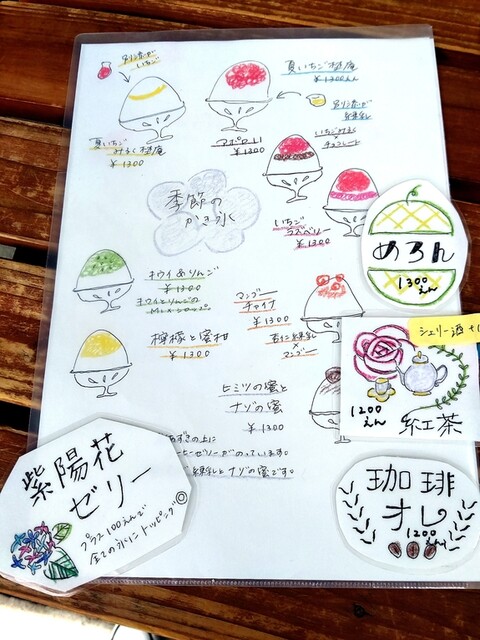 別添えが
いちご
夏いちご
みるく
¥1300
夏いちご
¥1300えん
別添えが
練乳
¥1300
いちごみるく
チョコレート
いちご
ラズベリー
¥1300
季節の
かき氷
めろん
1300
えん
キウイ&りんご
¥1300
キウイとりんごの
Mixシロップ。
マンゴー
チャイナ
¥1300
杏仁練乳
×
マンゴー
檸檬と蜜柑
¥1300
シェリー酒+
1200
えん
紅茶
ヒミツの蜜と
ナゾの蜜
¥1300
あずきの上に
ーゼリーがのっています。
練乳とナゾの蜜です。
紫陽花
ゼリー
プラス100えんで
全ての氷にトッピング◎
珈琲
オレ
1200
えん